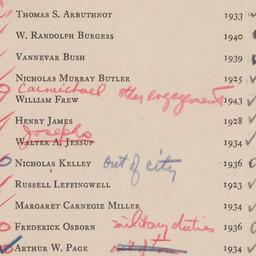 Thomas S. Arbuthnot 1933
W. Randolph Burgess 1940
Vannevar Bush 1939
Nicholas Murray Butler 1925
Carmichael other engagements
William Frew 1943
Henry James 1928
Josephs
Walter A. Jessup 1934
Nicholas Kelley out of city 1936
Russell Leffingwell 1923
Margaret Carnegie Miller 1934
Frederick Osborn military duties 1936
Arthur W. Page out of town 1934